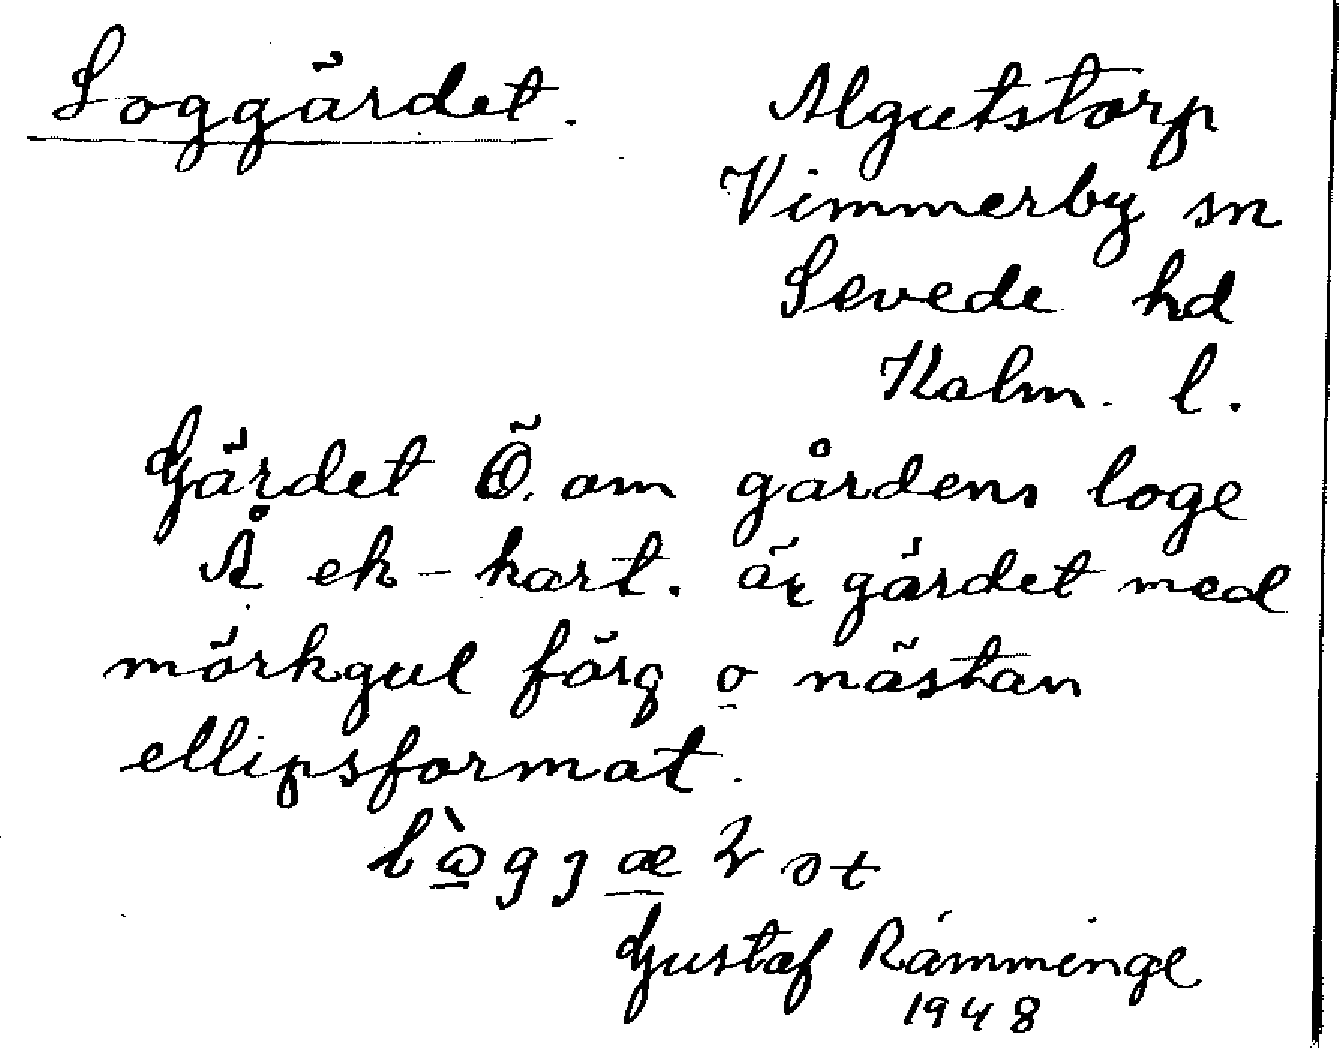 Loggärdet.
Algutstorp
Vimmerby sn
Sevede hd
Kalm. l.
Gärdet Ö. om gårdens loge
Å ek-kart. är gärdet med
mörkgul färg o nästan
ellipsformat.
Gustaf Ramminge
1948